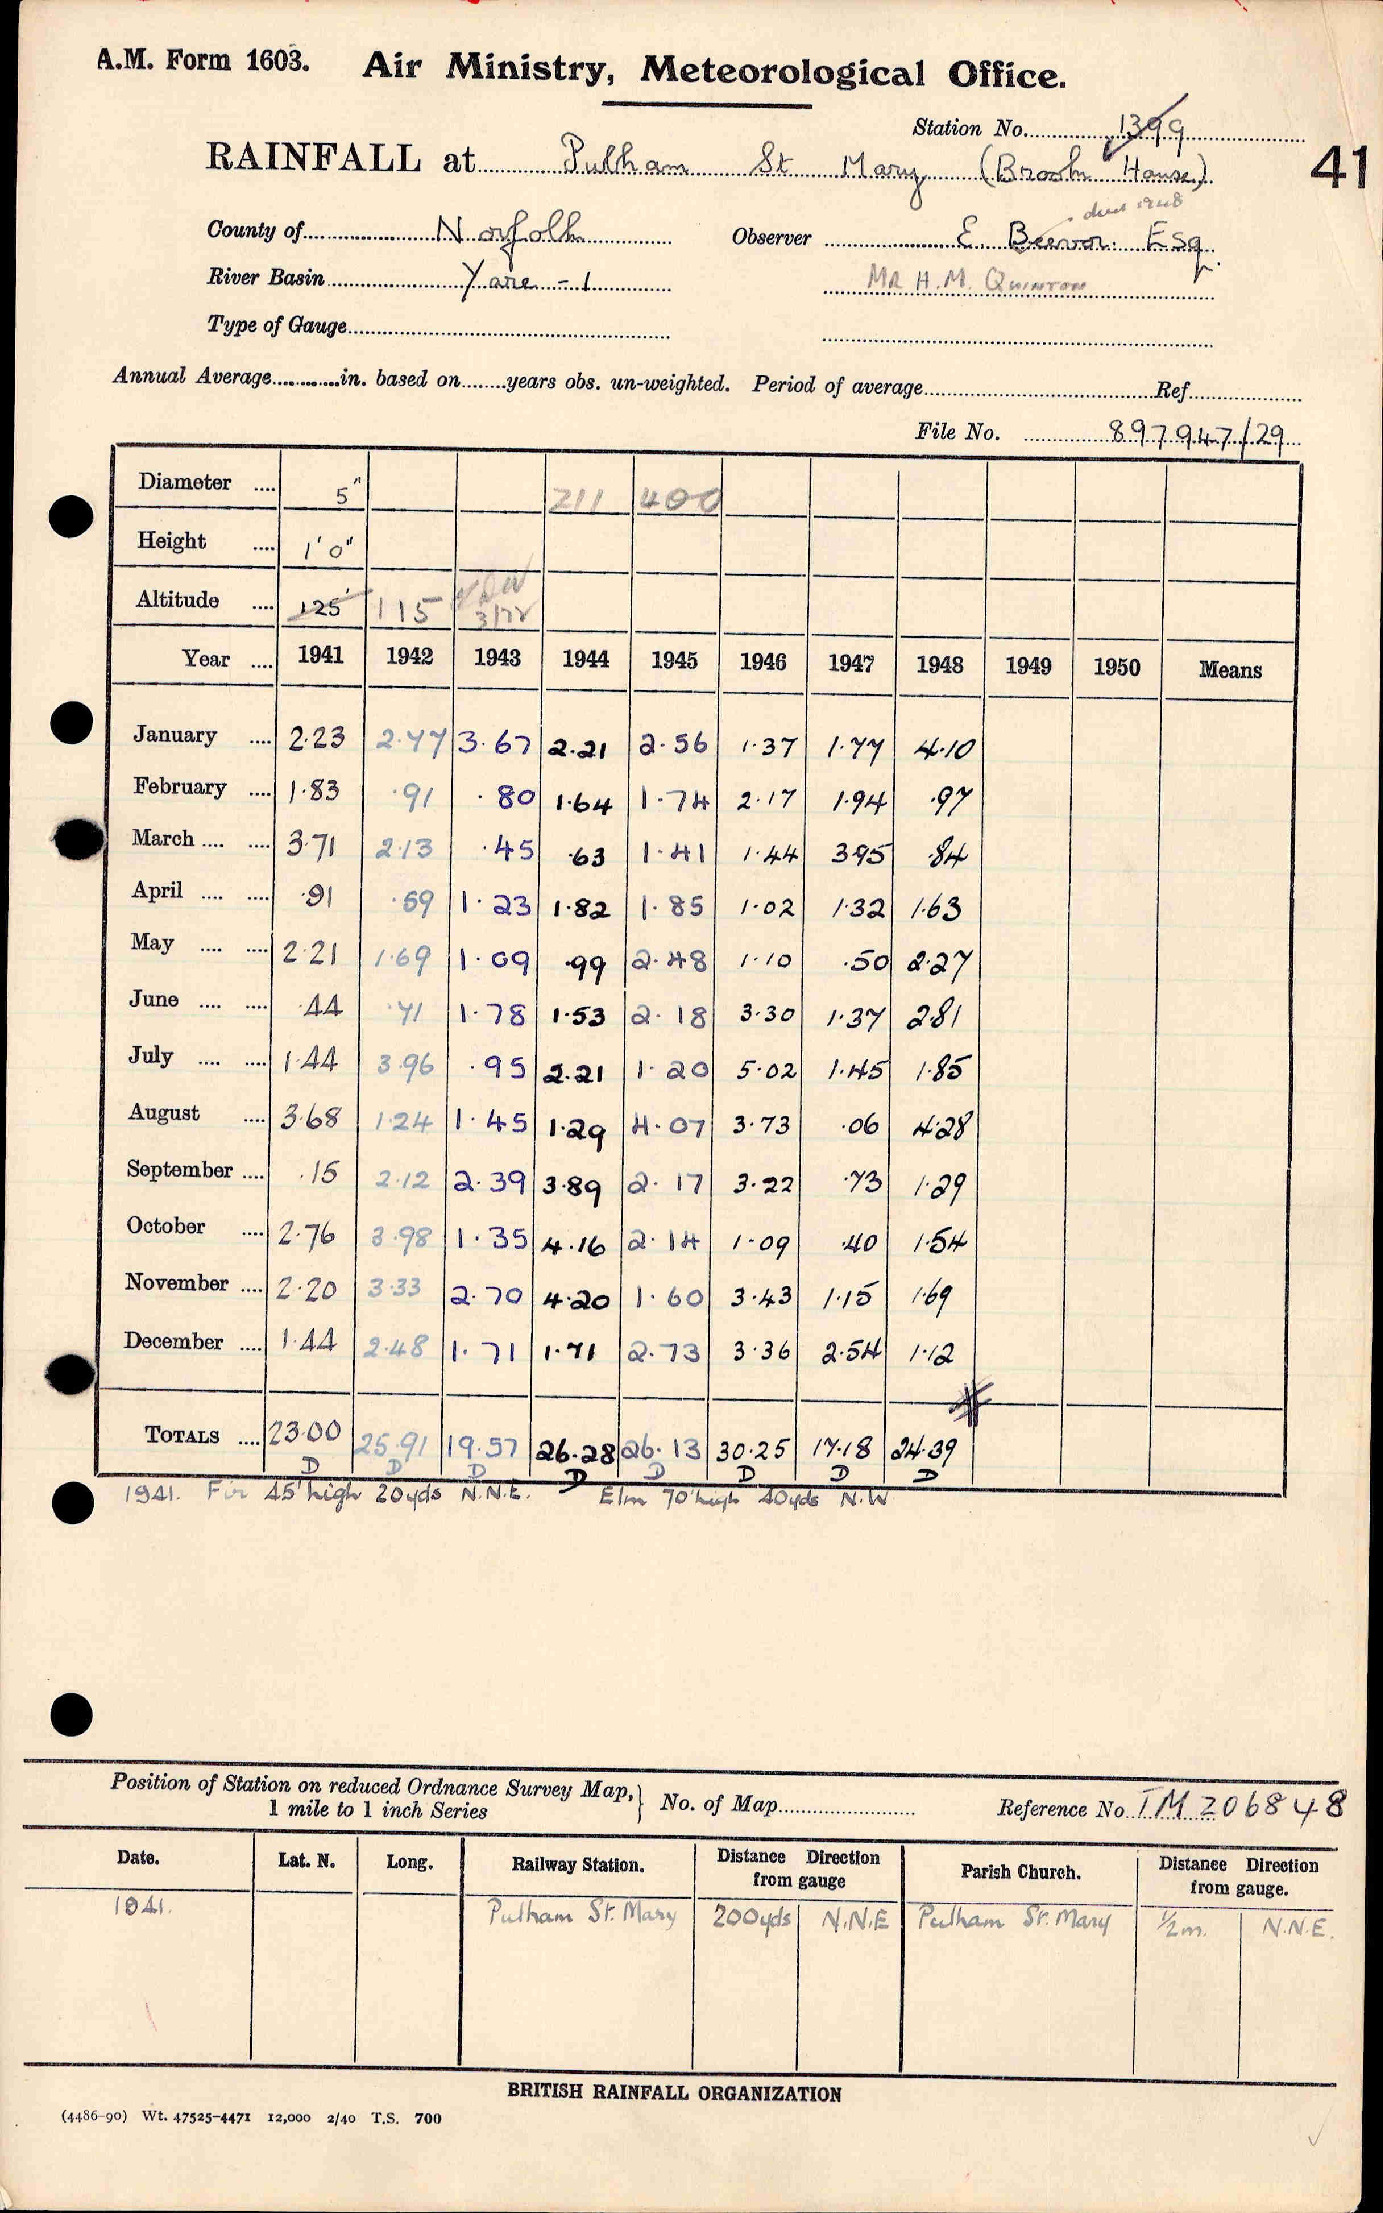 A.M. Form 1603. Air Ministry, Meteorological Office.
Station No. 1399
RAINFALL at Pulham St Mary (Brook House)
41
County of Norfolk Observer E. Beevor. Esq. died 1948
River Basin Yare - 1 MR H.M. QUINTON
Type of Gauge
Annual Average in. based on years obs. un-weighted. Period of average Ref.
File No. 897947/29
Diameter 5" 211 400
Height 1' 0"
Altitude 125' 115 3/72
Year 1941 1942 1943 1944 1945 1946 1947 1948 1949 1950 Means
January 2.23 2.77 3.67 2.21 2.56 1.37 1.77 4.10
February 1.83 .91 .80 1.64 1.74 2.17 1.94 .97
March 3.71 2.13 .45 .63 1.41 1.44 3.95 .84
April .91 .59 1.23 1.82 1.85 1.02 1.32 1.63
May 2.21 1.69 1.09 .99 2.48 1.10 .50 2.27
June .44 .71 1.78 1.53 2.18 3.30 1.37 2.81
July 1.44 3.96 .95 2.21 1.20 5.02 1.45 1.85
August 3.68 1.24 1.45 1.29 4.07 3.73 .06 4.28
September .15 2.12 2.39 3.89 2.17 3.22 .73 1.29
October 2.76 3.98 1.35 4.16 2.14 1.09 .40 1.54
November 2.20 3.33 2.70 4.20 1.60 3.43 1.15 1.69
December 1.44 2.48 1.71 1.71 2.73 3.36 2.54 1.12
TOTALS 23.00 25.91 19.57 26.28 26.13 30.25 17.18 24.39
D D D D D D D D
1941. Fir 45' high 20yds N.N.E. Elm 70' high 40yds N.W
Position of Station on reduced Ordnance Survey Map, 1 mile to 1 inch Series } No. of Map Reference No. TM 206848
Date. Lat. N. Long. Railway Station. Distance Direction from gauge Parish Church. Distance Direction from gauge.
1941. Pulham St. Mary 200yds N.N.E Pulham St. Mary ½m. N.N.E.
BRITISH RAINFALL ORGANIZATION
(4486-90) Wt. 47525-4471 12,000 2/40 T.S. 700